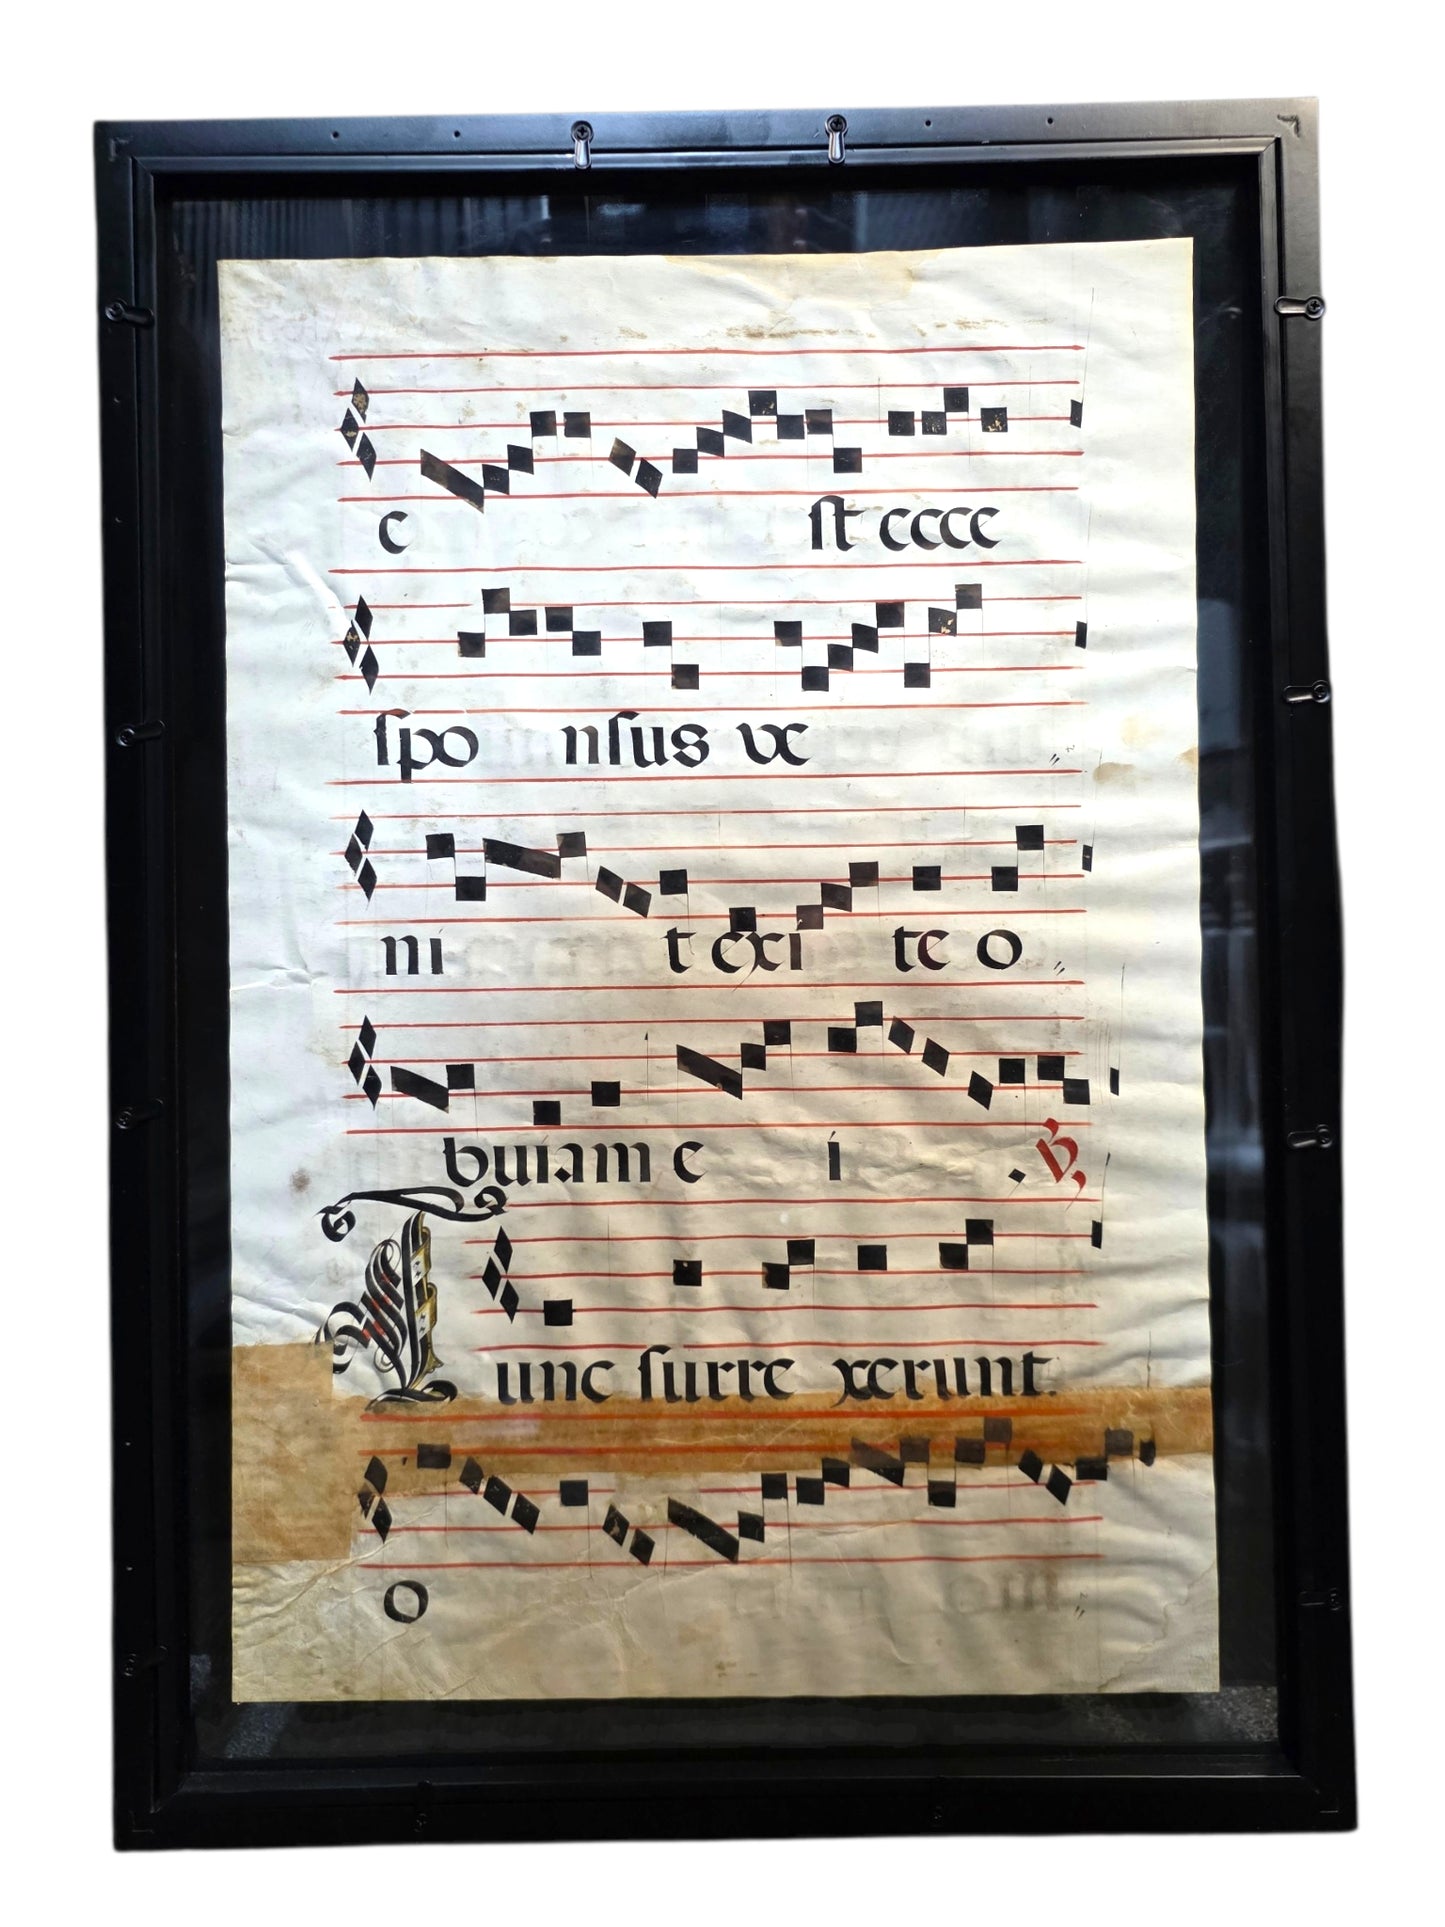 e ſt ecce
ſpo nſus ve
ni t exi te o
buiam e i . ℣
Tunc ſurre xerunt.
o